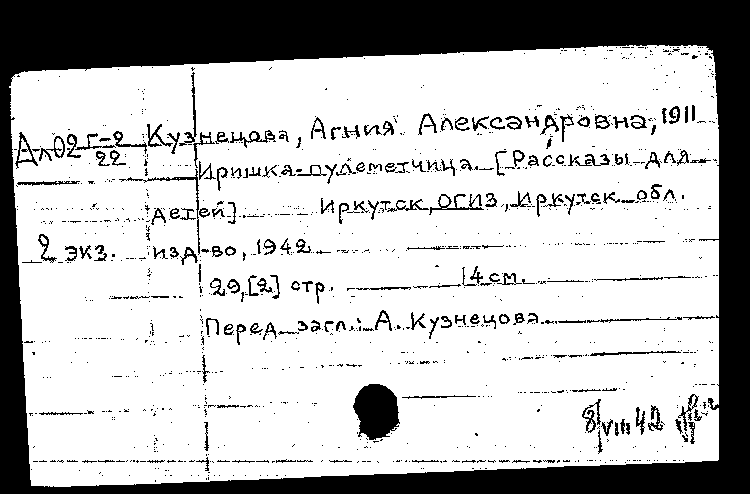 Ал02 Г-2/22 Кузнецова, Агния Александровна, 1911
Иришка-пулеметчица. [Рассказы для
детей] Иркутск, ОГИЗ, Иркутск. обл.
2 экз. изд-во, 1942
29, [2] стр. 14 см.
Перед загл.: А. Кузнецова.
8/VIII 42